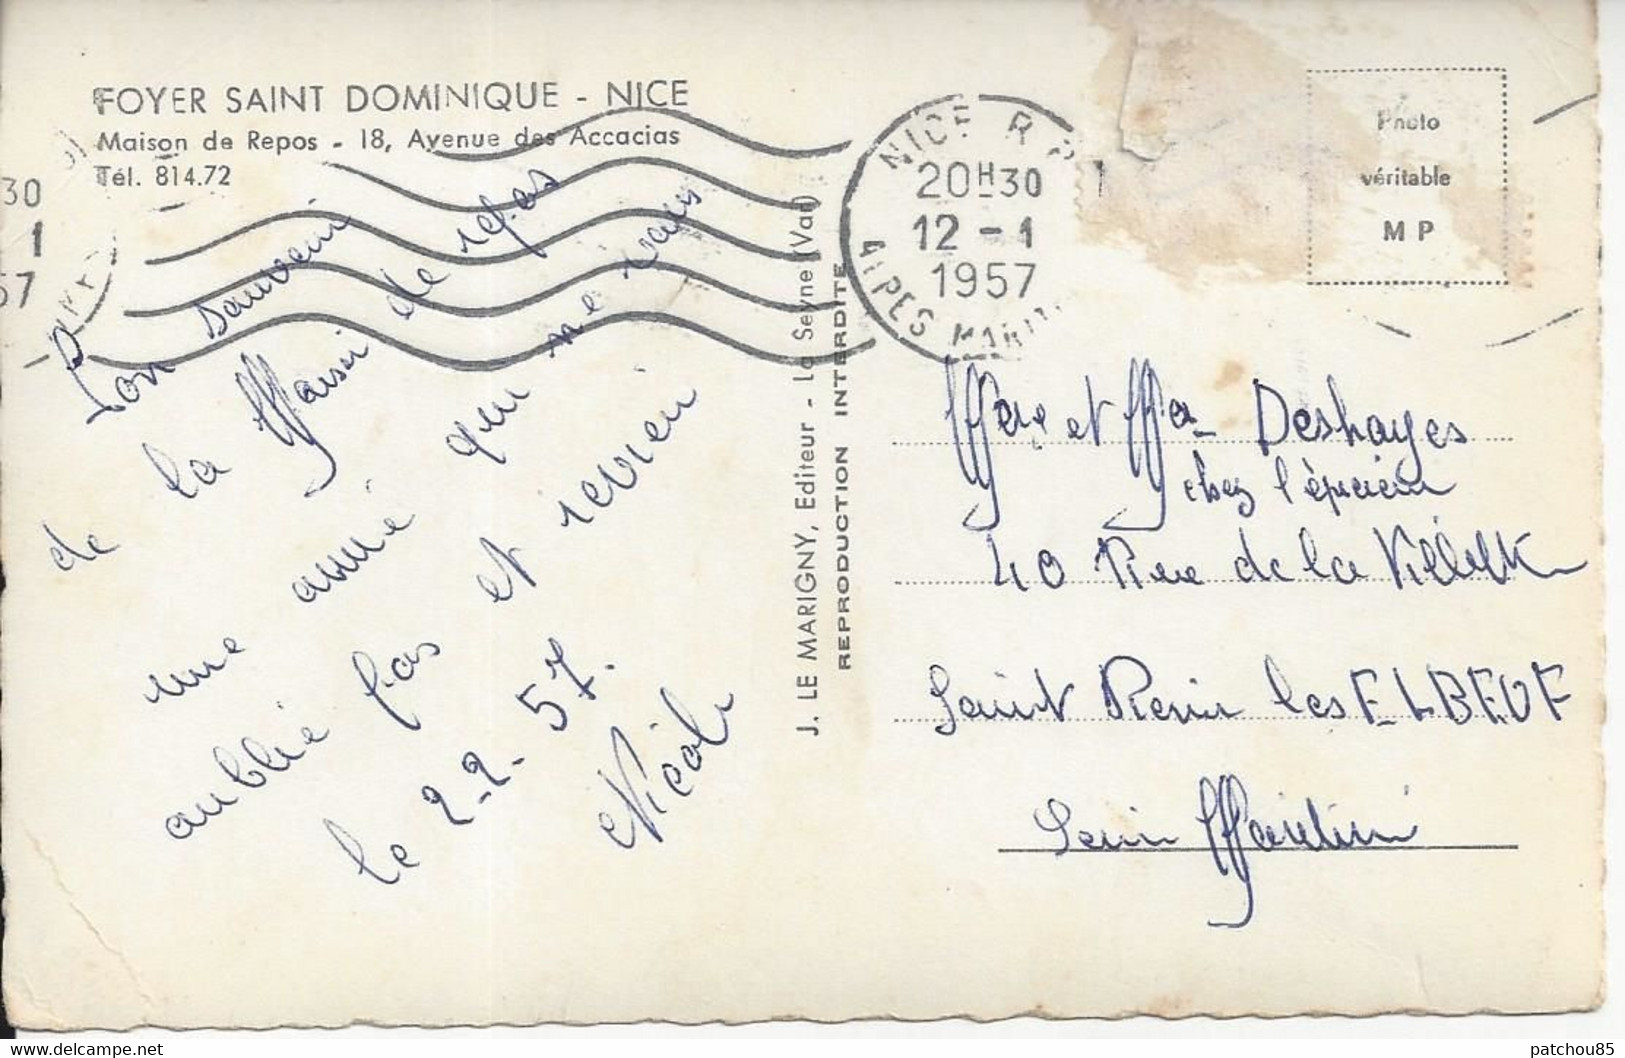 FOYER SAINT DOMINIQUE - NICE
Maison de Repos - 18, Avenue des Accacias
Tél. 814.72
30
1
57
NICE R P
20H30
12 - 1
1957
ALPES MARIT
Photo
véritable
M P
Bon souveni
de la Maison de repos
une amié qui ne vous
oublié pas et revien
le 2-2-57.
Nicole
J. LE MARIGNY, Editeur - La Seyne (Var)
REPRODUCTION INTERDITE
et Deshayes
chez l'épicier
40 Rue de la
Saint les ELBEUF
patchou85